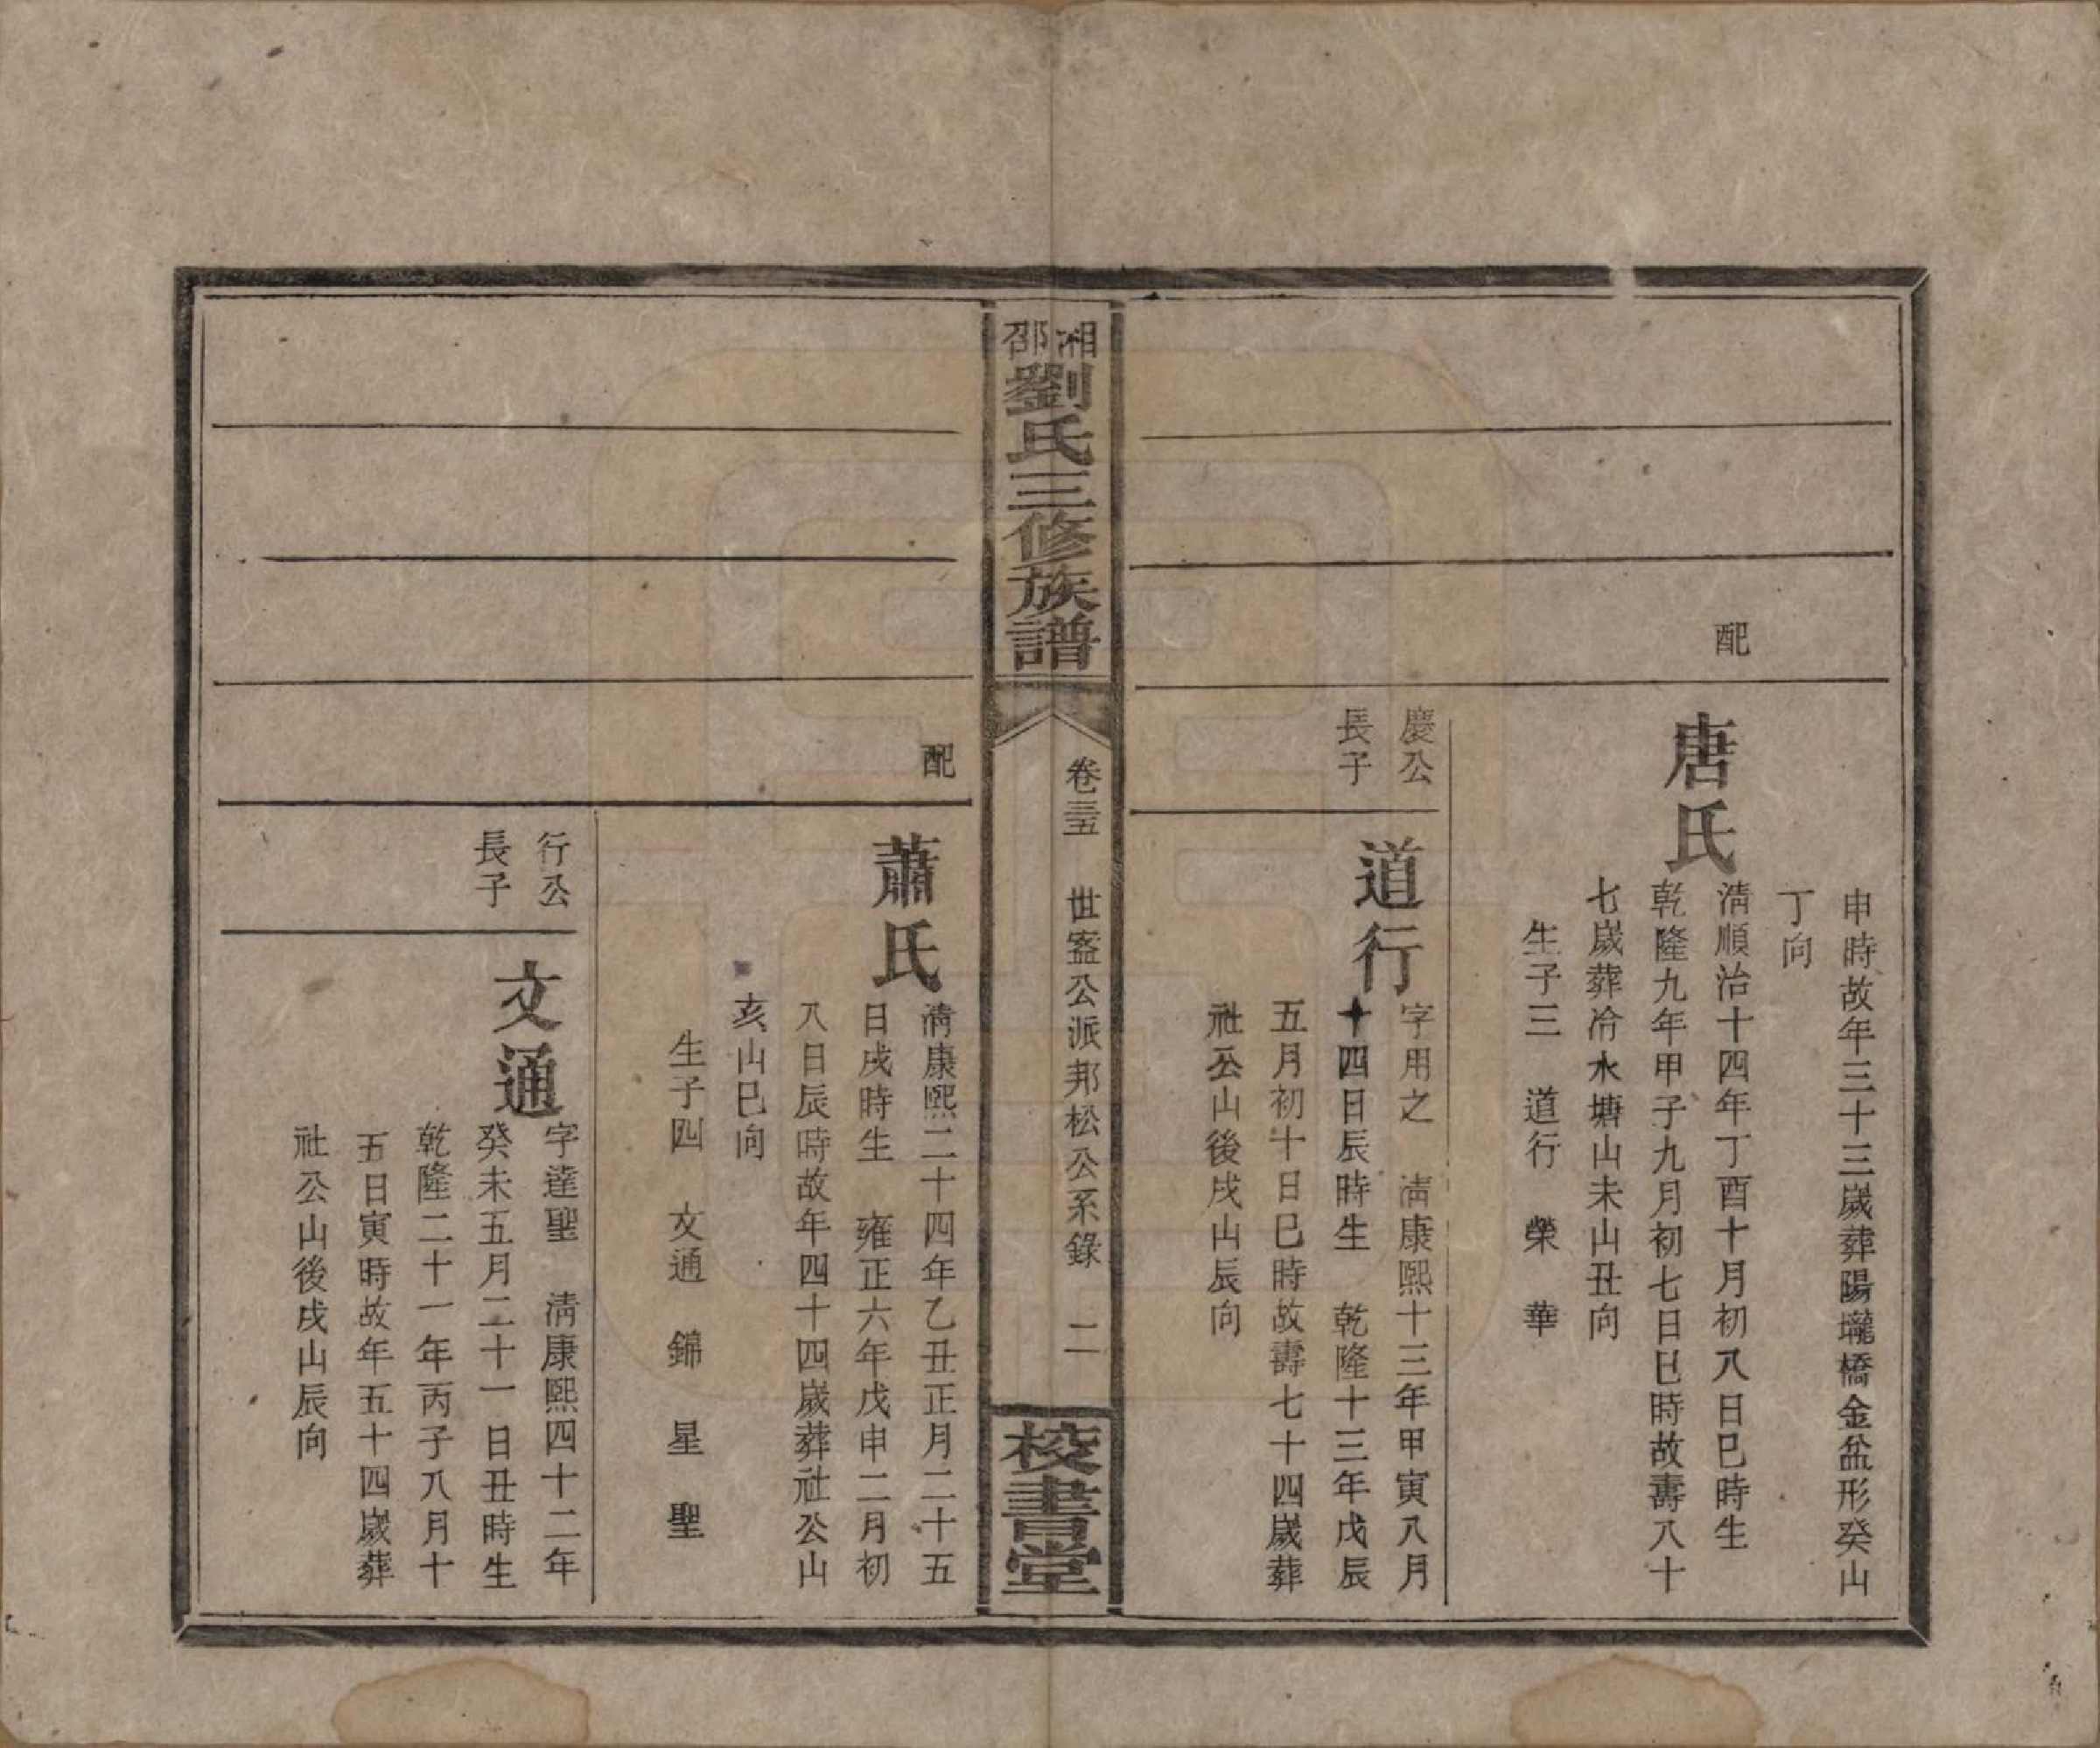 申時故年三十三歲葬陽壠橋金盆形癸山
丁向
配
唐氏
清順治十四年丁酉十月初八日巳時生
乾隆九年甲子九月初七日巳時故壽八十
七歲葬冷水塘山未山丑向
生子三　道行　榮　華
慶公
長子
道行
字用之　清康熙十三年甲寅八月
十四日辰時生　乾隆十三年戊辰
五月初十日巳時故壽七十四歲葬
社公山後戌山辰向
湘邵
劉氏三修族譜
卷三五　世盔公派邦松公系錄　二
校書堂
配
蕭氏
清康熙二十四年乙丑正月二十五
日戌時生　雍正六年戊申二月初
八日辰時故年四十四歲葬社公山
亥山巳向
生子四　文通　錦　星　聖
行公
長子
文通
字達聖　清康熙四十二年
癸未五月二十一日丑時生
乾隆二十一年丙子八月十
五日寅時故年五十四歲葬
社公山後戌山辰向